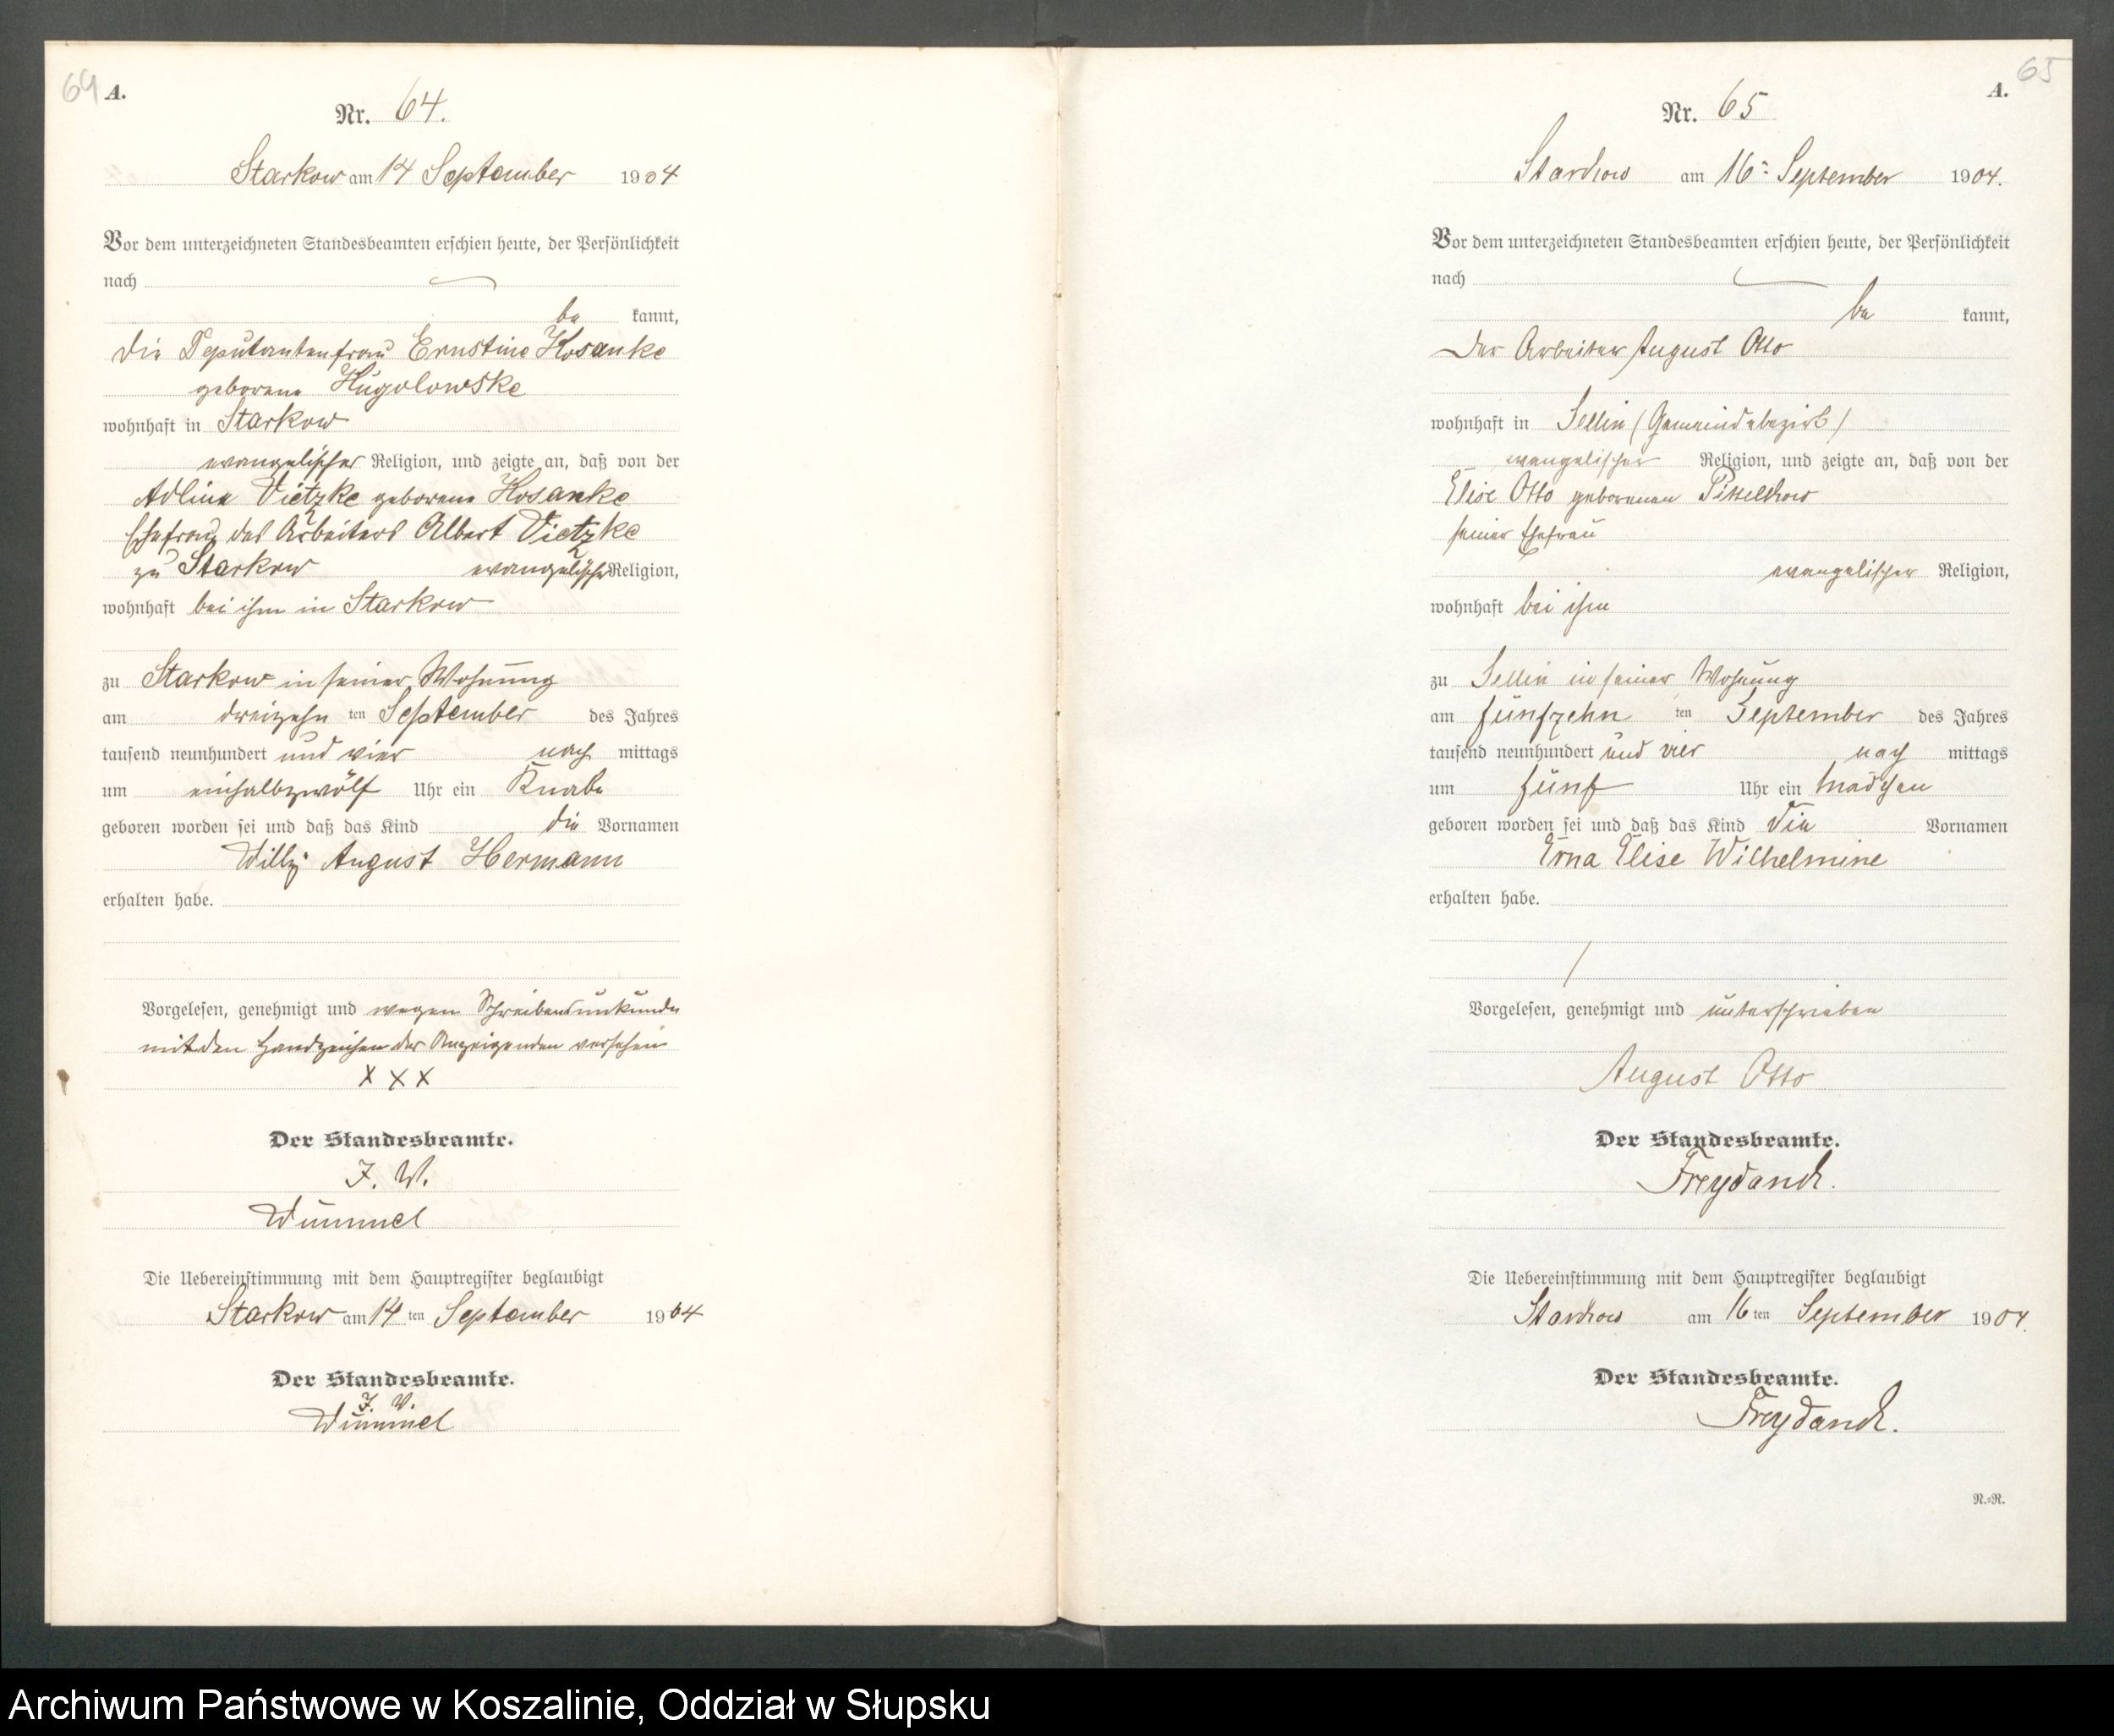 64
A.
Nr. 64.
Starkow am 14 September 1904
Vor dem unterzeichneten Standesbeamten erschien heute, der Persönlichkeit
nach
be kannt,
die Deputantenfrau Ernstine Kosanke
geborene Kugolowske
wohnhaft in Starkow
evangelischer Religion, und zeigte an, daß von der
Adline Vietzke geborene Kosanke
Ehefrau des Arbeiters Albert Vietzke
zu Starkow evangelischer Religion,
wohnhaft bei ihm in Starkow
zu Starkow in seiner Wohnung
am dreizehn ten September des Jahres
tausend neunhundert und vier nach mittags
um einhalbzwölf Uhr ein Knabe
geboren worden sei und daß das Kind die Vornamen
Willy August Hermann
erhalten habe.
Vorgelesen, genehmigt und wegen Schreibensunkunde
mit den Handzeichen der Anzeigenden versehen
X X X
Der Standesbeamte.
I. V.
Dummel
Die Uebereinstimmung mit dem Hauptregister beglaubigt
Starkow am 14 ten September 1904
Der Standesbeamte.
I. V.
Dummel
65
A.
Nr. 65
Starkow am 16 September 1904.
Vor dem unterzeichneten Standesbeamten erschien heute, der Persönlichkeit
nach
be kannt,
Der Arbeiter August Otto
wohnhaft in Sellin (Gemeindebezirk)
evangelischer Religion, und zeigte an, daß von der
Elise Otto geborenen Pittelkow
seiner Ehefrau
evangelischer Religion,
wohnhaft bei ihm
zu Sellin in seiner Wohnung
am fünfzehn ten September des Jahres
tausend neunhundert und vier nach mittags
um fünf Uhr ein Mädchen
geboren worden sei und daß das Kind die Vornamen
Erna Elise Wilhelmine
erhalten habe.
Vorgelesen, genehmigt und unterschrieben
August Otto
Der Standesbeamte.
Freydanck.
Die Uebereinstimmung mit dem Hauptregister beglaubigt
Starkow am 16 ten September 1904.
Der Standesbeamte.
Freydanck.
N.=R.
Archiwum Państwowe w Koszalinie, Oddział w Słupsku